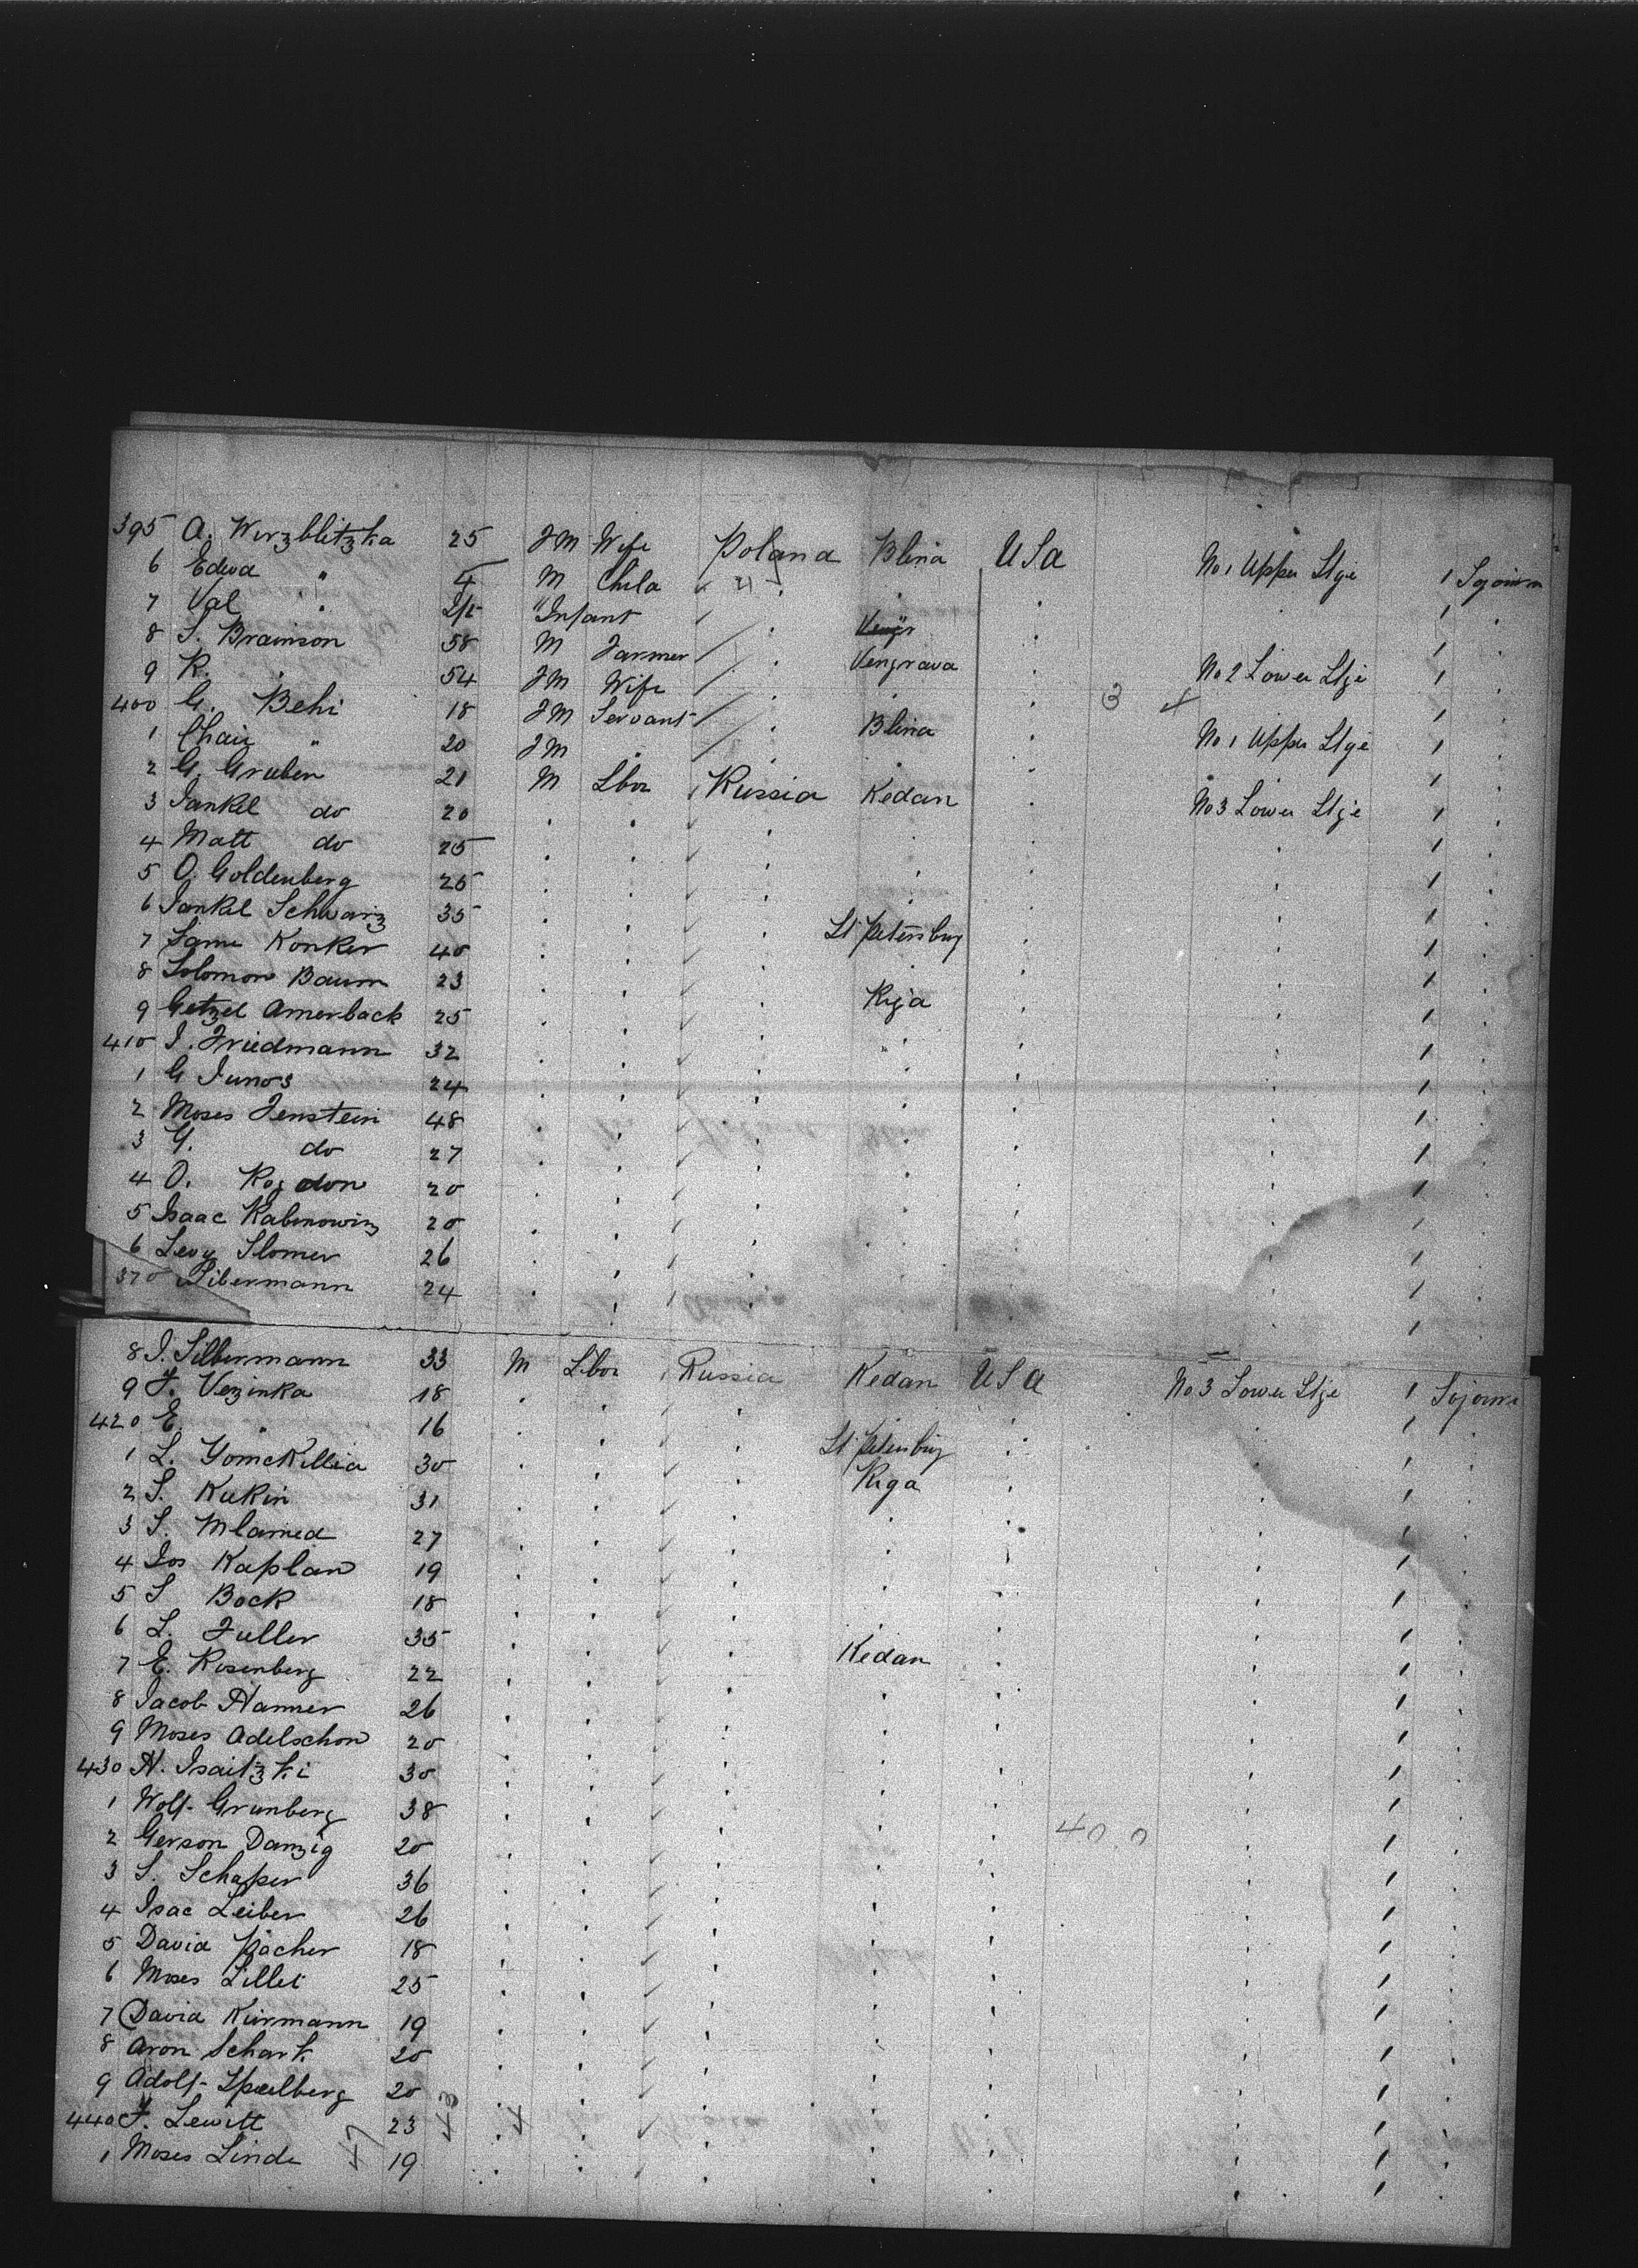 395 A. Wirzblitzka 25 FM Wife Poland Blina USA No 1 Upper Stge 1 Sojourn
6 Edwa " 4 M Child "
7 Val " Infant
8 S. Bramson 58 M Farmer Vengrava No 2 Lower Stge 1
9 R. " 54 FM Wife 1
400 G. Behi 18 FM Servant Blina No 1 Upper Stge 1
1 Chaie " 20 FM " 1
2 G. Gruben 21 M Lbor Russia Kedan No 3 Lower Stge 1
3 Jankel do 20 1
4 Matt do 25 1
5 O. Goldenberg 25 1
6 Jankel Schwarz 35 St Petersburg 1
7 Sami Konker 40 1
8 Solomon Baum 23 Riga 1
9 Getzel Amerback 25 1
410 I. Friedmann 32 1
1 G Junos 24 1
2 Moses Fenstein 48 1
3 G. do 27 1
4 O. Rogdon 20 1
5 Isaac Rabinowinz 20 1
6 Levy Slomer 26 1
370 Libermann 24 1
8 I. Silbermann 33 M Lbor Russia Kedan USA No 3 Lower Stge 1 Sojourn
9 F. Vezinka 18 1
420 E. " 16 St Petersburg 1
1 L. Yomckillia 30 Riga 1
2 S. Kukin 31 1
3 S. Mlamed 27 1
4 Jos Kaplan 19 1
5 S Bock 18 1
6 L. Fuller 35 Kedan 1
7 E. Rosenberg 22 1
8 Jacob Hanner 26 1
9 Moses Adelschon 20 1
430 H. Isaitzki 30 1
1 Wolf Grunberg 38 1
2 Gerson Danzig 20 400 1
3 S. Schaper 36 1
4 Isac Leiber 26 1
5 David Pacher 18 1
6 Moses Lillet 25 1
7 David Kurmann 19 1
8 Aron Schark 20 1
9 Adolf Spielberg 20 1
440 F. Lewitt 23 1
1 Moses Linde 19 1